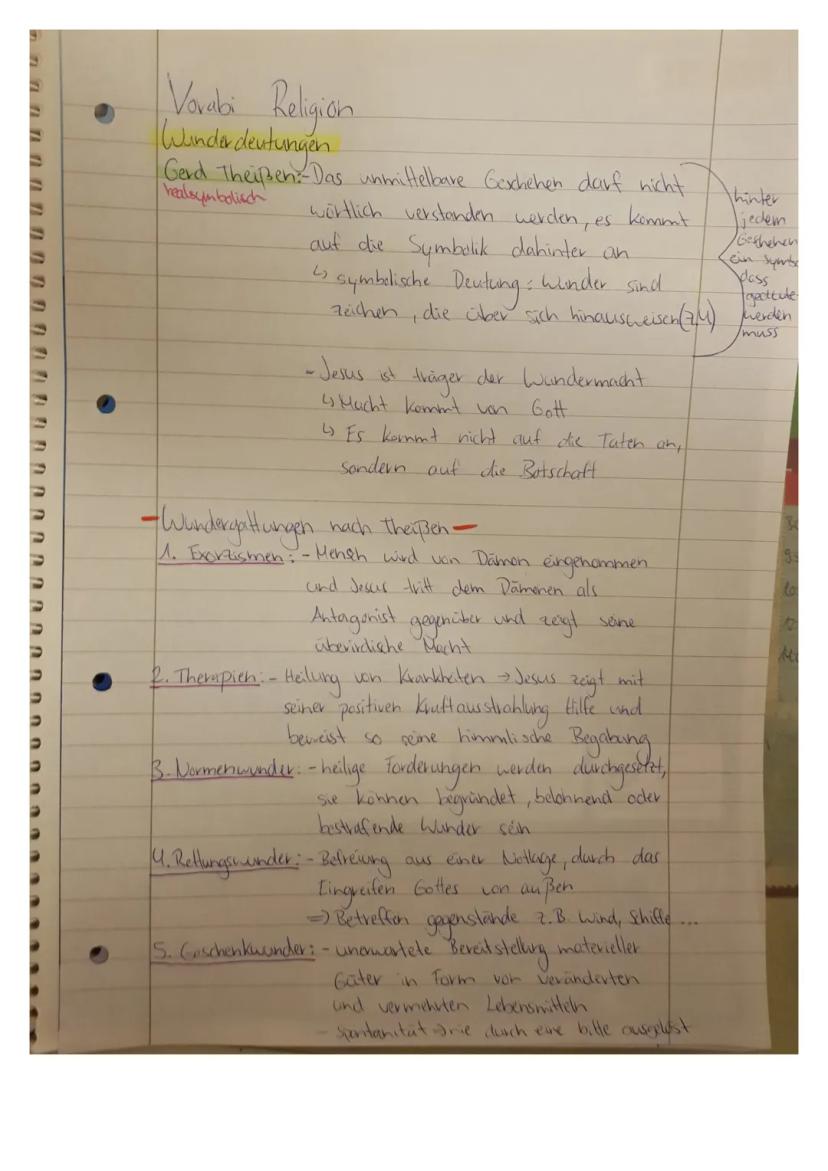 Vorabi Religion
Wunderdeutungen
Gerd Theißen:-Das unmittelbare Geschehen darf nicht
realsymbolisch
wörtlich verstanden werden, es kommt
auf die Symbolik dahinter an
↳ symbolische Deutung: Wunder sind
zeichen, die über sich hinausweisen (7,4)
hinter
jedem
Geschehen
ein symbo
dass
gedeute
werden
muss
- Jesus ist träger der Wundermacht
↳ Macht kommt von Gott
↳ Es kommt nicht auf die Taten an,
sondern auf die Botschaft
- Wundergattungen nach Theißen -
1. Exorzismen: - Mensh wird von Dämon eingenommen
und Jesus tritt dem Dämonen als
Antagonist gegenüber und zeigt seine
überirdische Macht
2. Therapien: - Heilung von Krankheiten → Jesus zeigt mit
seiner positiven Kraftausstrahlung Hilfe und
beweist so seine himmlische Begabung
3. Normenwunder: - heilige Forderungen werden durchgesetzt,
sie können begründet, belohnend oder
bestrafende Wunder sein
4. Rettungswunder: - Befreiung aus einer Notlage, durch das
Eingreifen Gottes von außen
=> Betreffen gegenstände z.B. Wind, Schiffe ...
5. Geschenkwunder: - unerwartete Bereitstellung materieller
Güter in Form von veränderten
und vermehrten Lebensmitteln
- spontanität → nie durch eine bitte ausgelöst